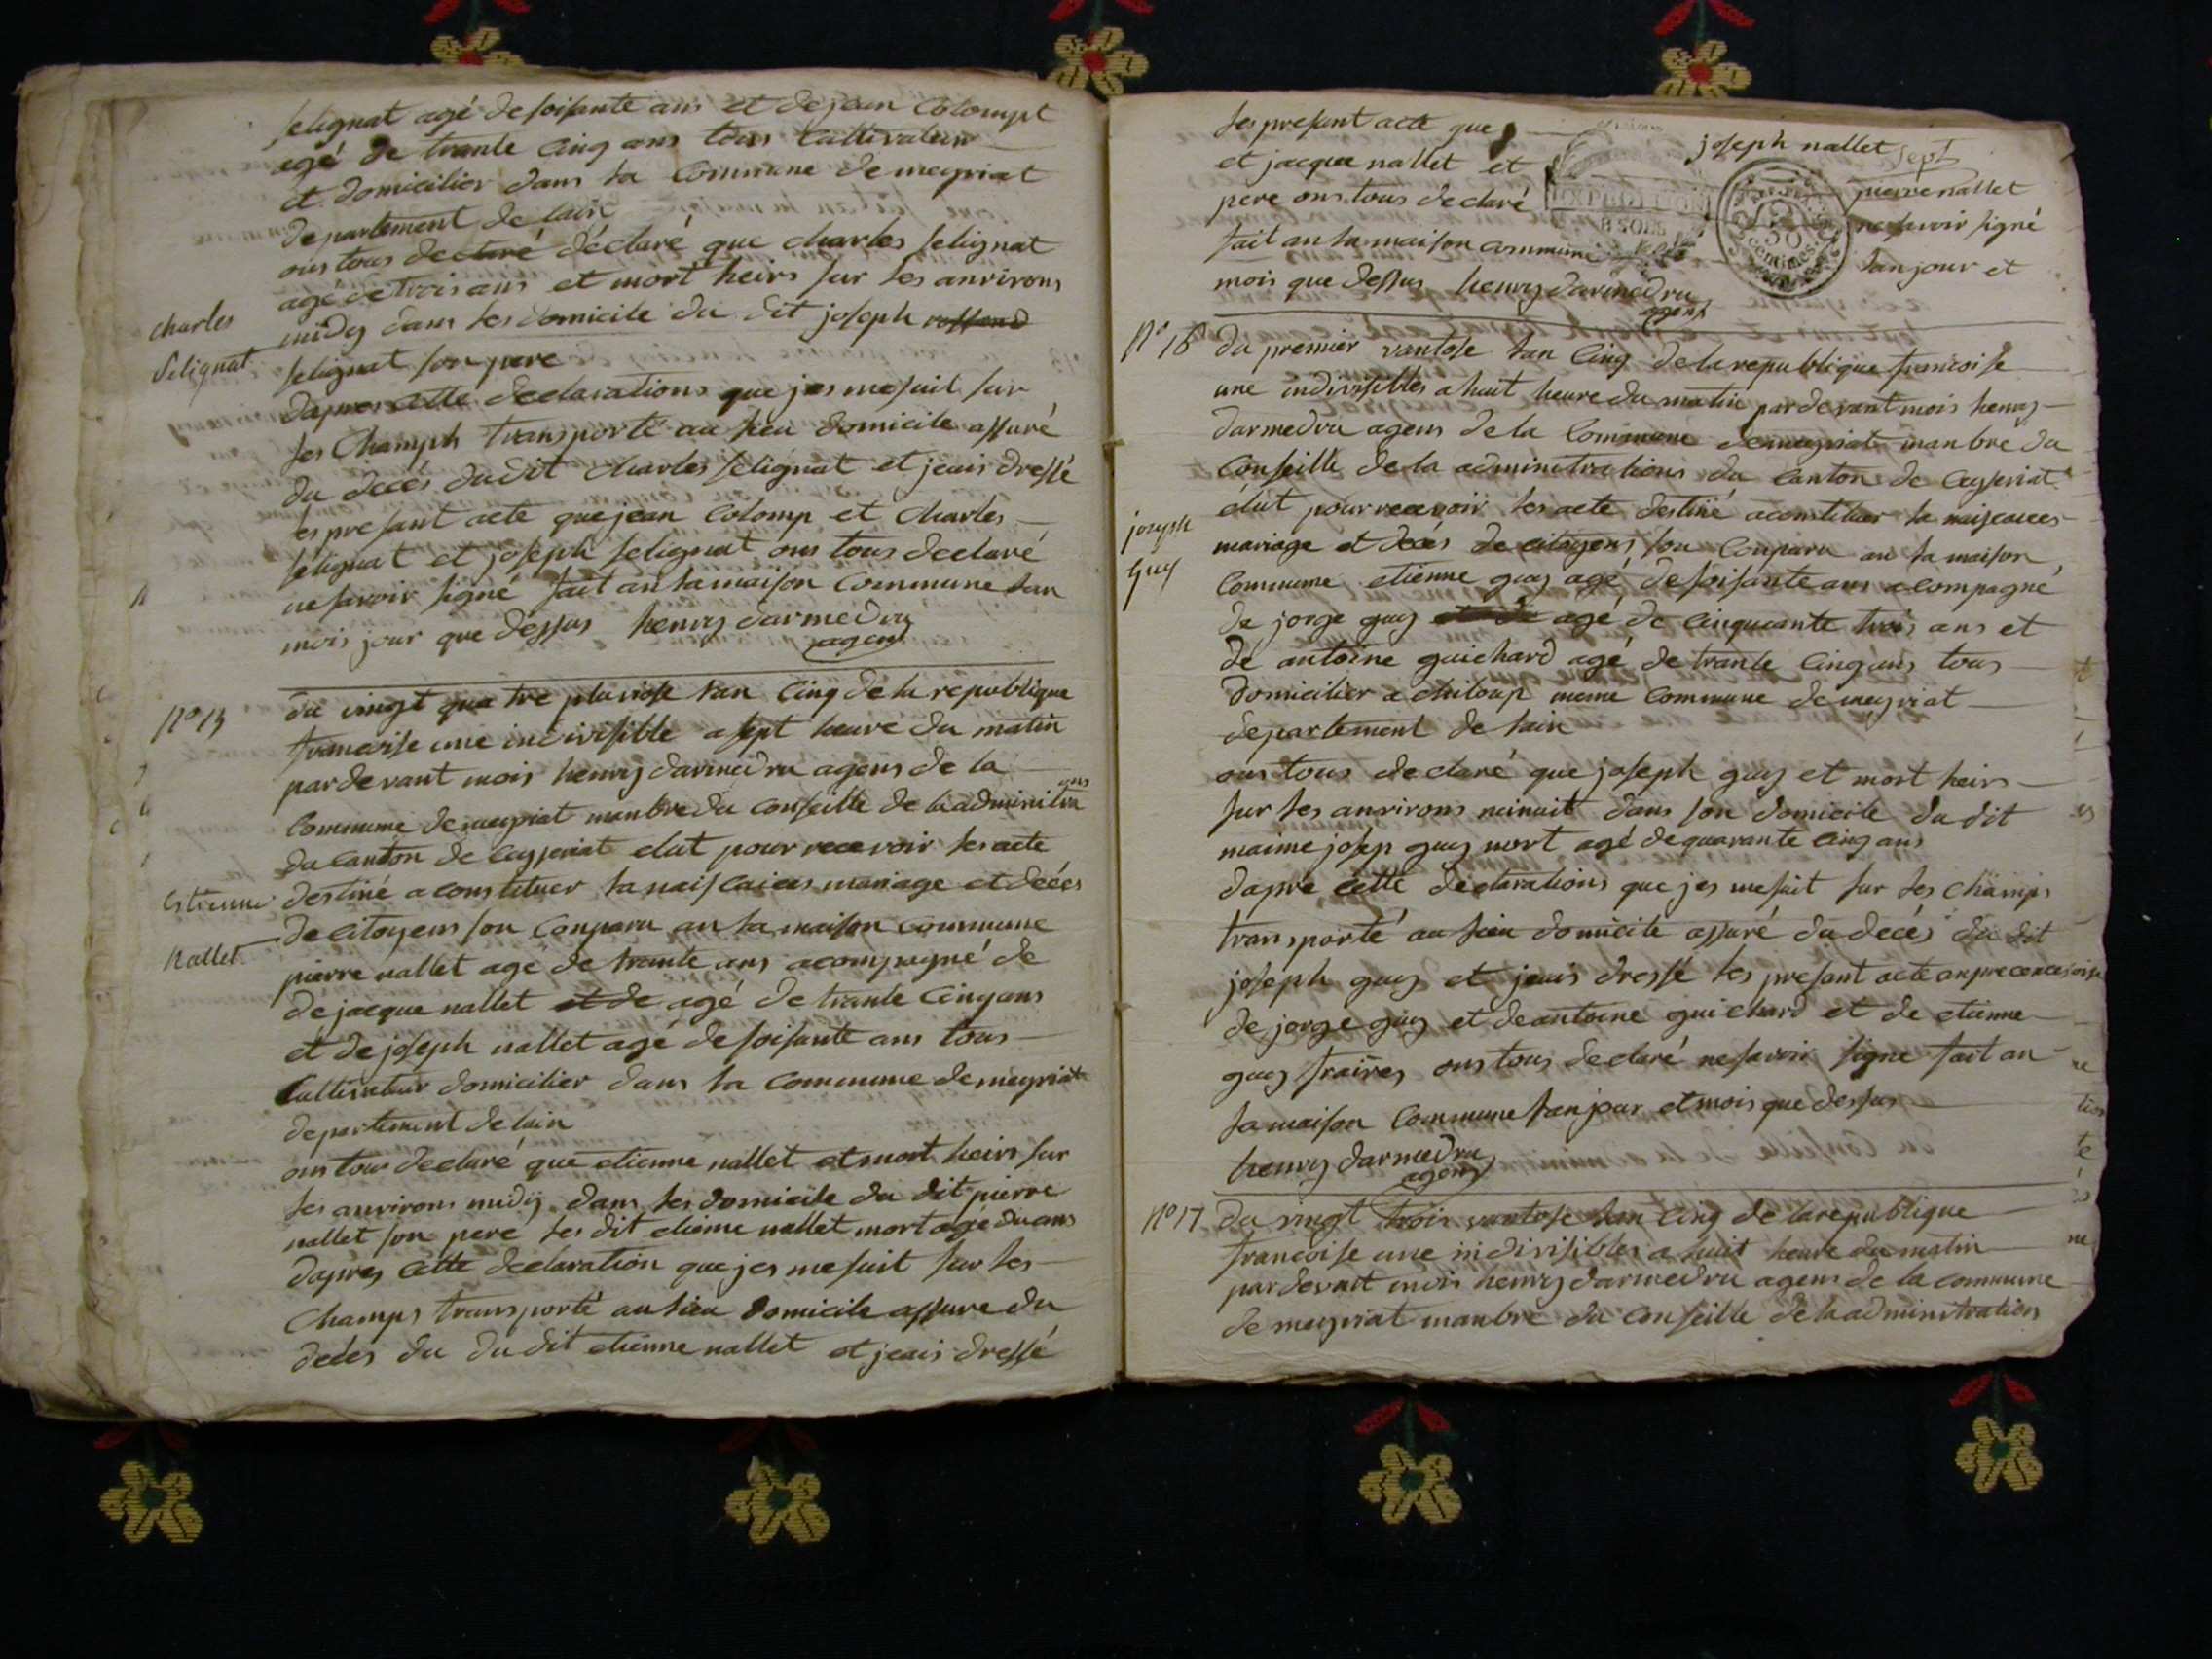 selignat agé de soisante ans et de jean Colompt
agé de trante Cinq ans tous Cultivateur
et domicilier dans la Commune de meyriat
departement de lain
ons tous declaré déclaré que charles selignat
agé de trois ans et mort heirs sur les anvirons
midy dans les domicile du dit joseph
charles
Selignat
selignat son pere
dapres cette declarations que jes me suit sur
les Champh transporté au lieu domicile assuré
du decés dudit Charles selignat et jeais dressé
les presant acte que jean Colomp et Charles
selignat et joseph selignat ons tous declaré
ne savoir signé fait an la maison Commune lan
mois jour que dessus henry darmedru
agens
No 15
du vingt qua tre pluviose lan Cinq de la republique
francoise une indivisible a sept heure du matin
par devant mois henry darmedru agens de la
Commune de meyriat manbre du Conseille de la administra
ons
du Canton de Ceyseriat elut pour recevoir les acte
Estienne
Nallet
destiné a constituer la naiscaices mariage et decées
de Citoyens son Conparu an la maison Commune
pierre nallet agé de trante ans acompagné de
de jacque nallet et de agé de trante Cinq ans
et de joseph nallet agé de soisante ans tous
Cultivateur domicilier dans la Commune de meyriat
departement de lain
ons tous declaré que etienne nallet et mort heirs sur
les anvirons midy dans les domicile du dit pierre
nallet son pere les dit etienne nallet mort agé du ans
dapres cette declaration que jes me suit sur les
Champs transporté au lieu domicile assure du
decés du du dit etienne nallet et jeais dressé
les presant acte que joseph nallet
sept
et jacque nallet et pierre nallet
pere ons tous declaré ne savoir signé
EXPEDITION
8 SOLS
50
Centimes
fait an la maison Commune lan jour et
mois que dessus henry darmedru
agens
No 16
du premier vantose lan Cinq de la republique francoise
une indivisibles a huit heure du matin par devant mois henry
darmedru agens de la Commune de meyriat manbre du
Conseille de la adminitrations du Canton de Ceyseriat
élut pour recevoir les acte destiné a constituer la naiscaices
joseph
Guy
mariage et decés de Citoyens son Conparu an la maison
Commune etienne guy agé de soisante ans acompagné
de jorge guy et de agé de Cinquante trois ans et
de antoine guichard agé de trante Cinq ans tous
domicilier a chiloup meme Commune de meyriat
departement de lain
ons tous declaré que joseph guy et mort heirs
sur les anvirons minuit dans son domicile du dit
maime josep guy mort agé de quarante Cinq ans
dapre cette déclarations que jes me suit sur les Champs
transporté au lieu domicile assuré du decés du dit
joseph guy et jeais dressé les presant acte an precences
de jorge guy et de antoine guichard et de etienne
guy fraires ons tous declaré ne savoir signe fait an
la maison Commune lan jour et mois que dessus
henry darmedru
agens
No 17
du vingt trois vantose lan Cinq de la republique
francoise une indivisibles a huit heure du matin
par devant mois henry darmedru agens de la commune
de meyriat manbre du Conseille de la adminitration